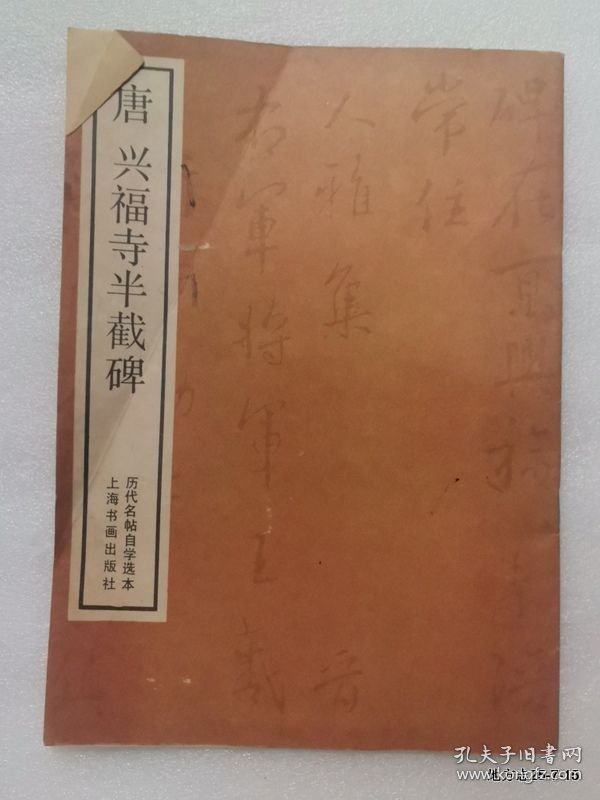 唐 兴福寺半截碑
历代名帖自学选本
上海书画出版社
碑在京興福寺陪
常住
人雅集 晉
右軍將軍王羲
孔夫子旧书网